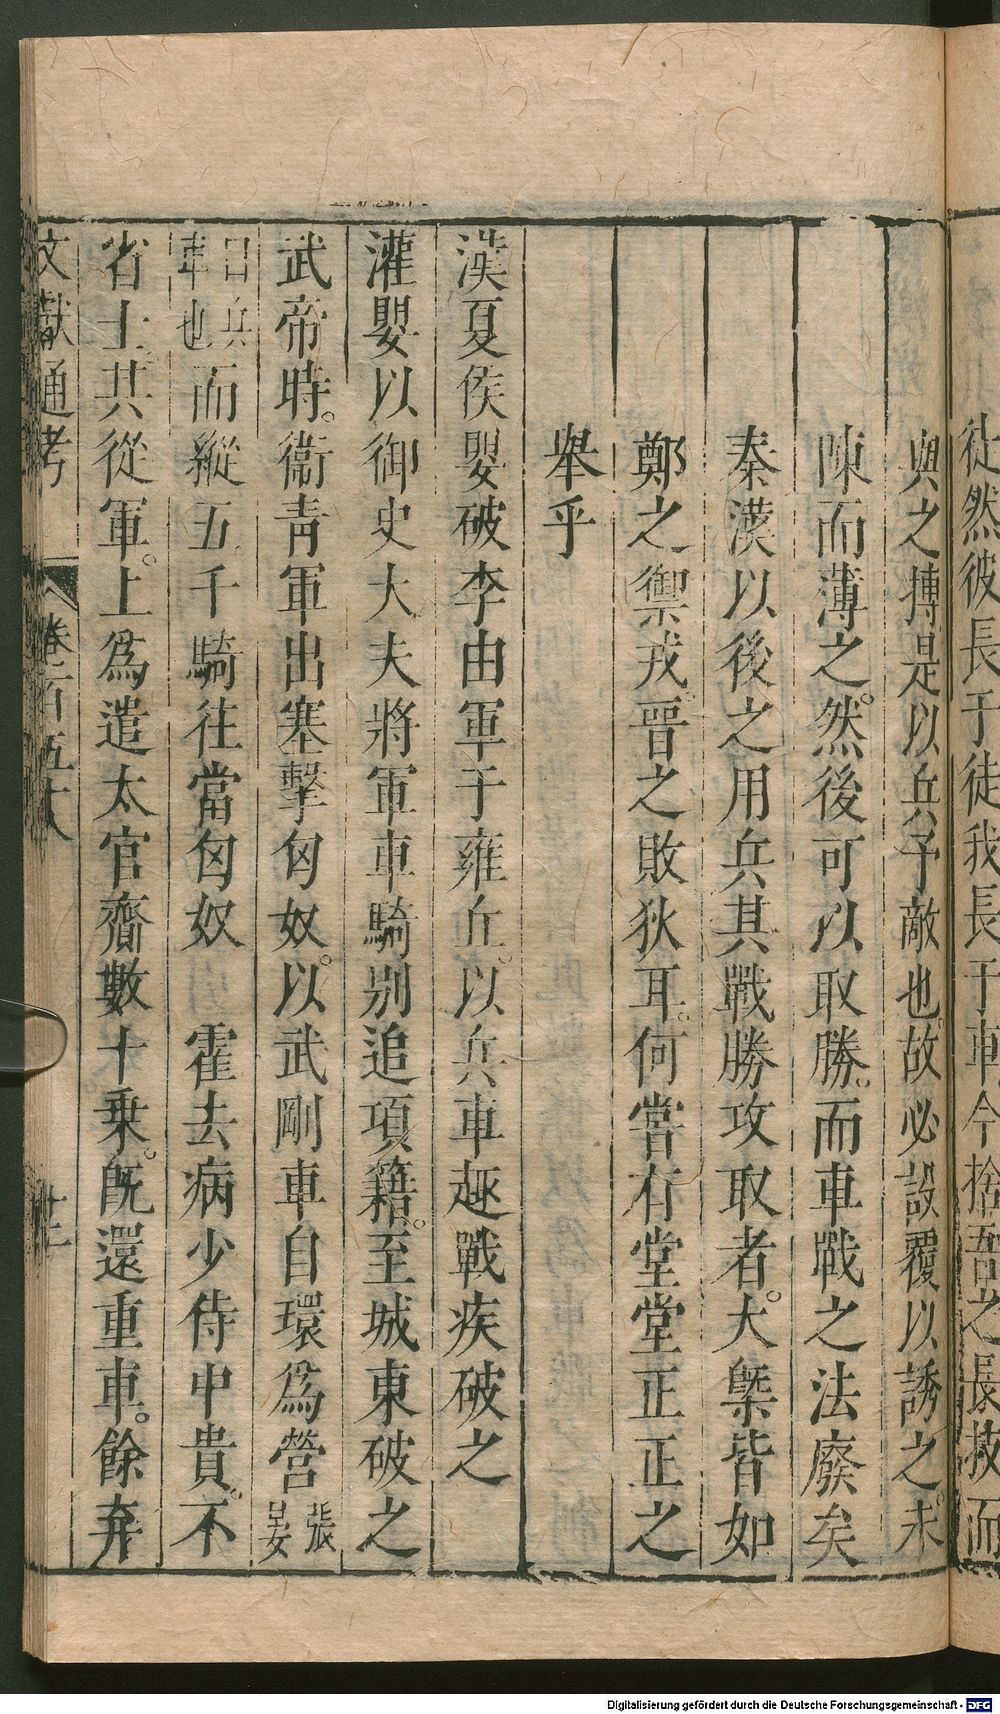 徒然彼長于徒我長于車今捨吾之長技而
與之搏是以兵予敵也故必設覆以誘之未
陳而薄之然後可以取勝而車戰之法廢矣
秦漢以後之用兵其戰勝攻取者大槩皆如
鄭之禦戎晉之敗狄耳何嘗有堂堂正正之
舉乎
漢夏侯嬰破李由軍于雍丘以兵車趣戰疾破之
灌嬰以御史大夫將軍車騎别追項籍至城東破之
武帝時衞青軍出塞擊匈奴以武剛車自環爲營張晏
曰兵車也而縱五千騎往當匈奴 霍去病少侍中貴不
省士共從軍上爲遣太官齎數十乗旣還重車餘弃
文獻通考 卷一百五十八 廿二
Digitalisierung gefördert durch die Deutsche Forschungsgemeinschaft - DFG